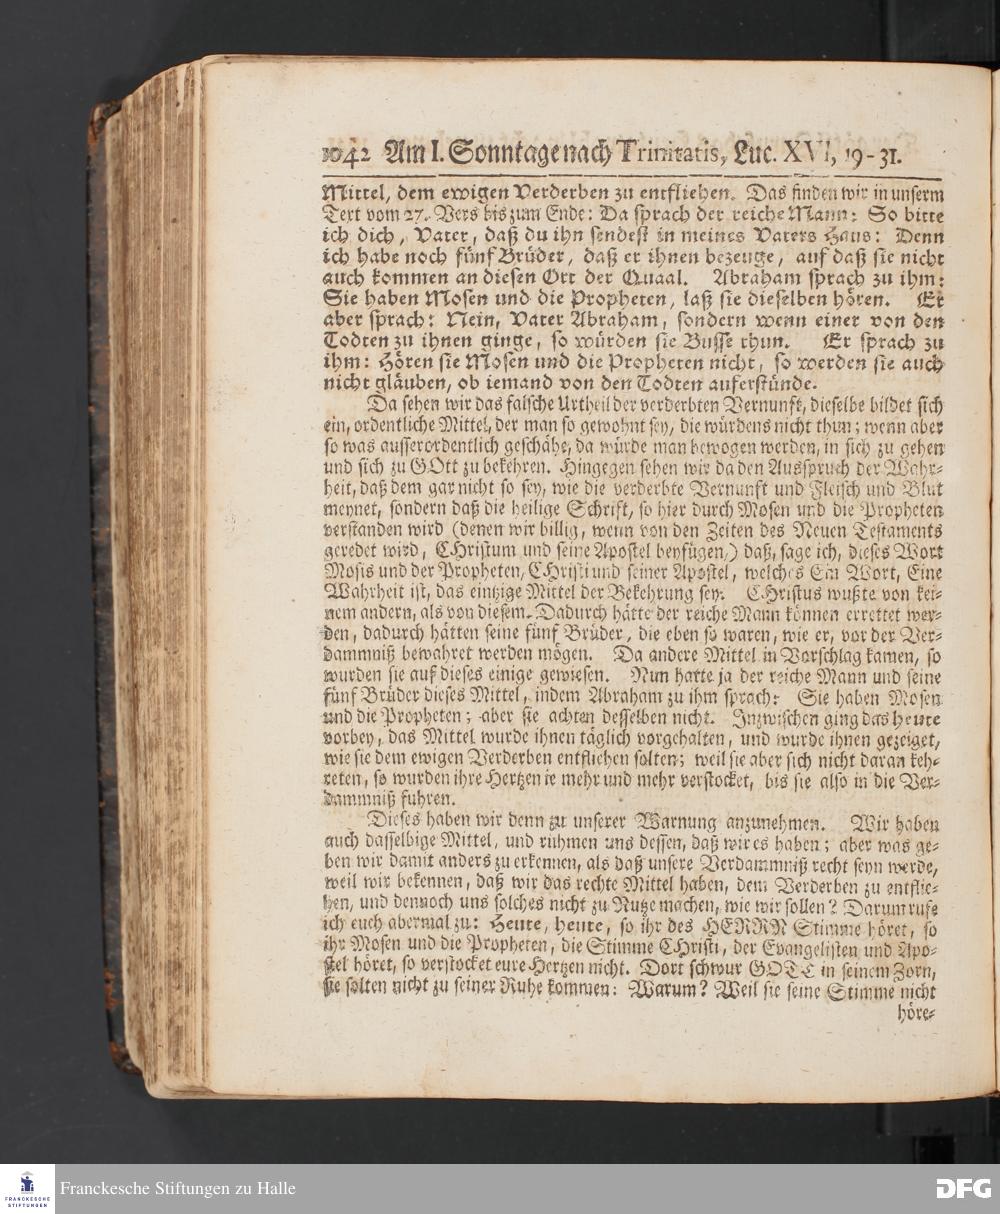 1042 Am I. Sonntage nach Trinitatis, Luc. XVI, 19-31.
Mittel, dem ewigen Verderben zu entfliehen. Das finden wir in unserm
Text vom 27. Vers bis zum Ende: Da sprach der reiche Mann: So bitte
ich dich, Vater, daß du ihn sendest in meines Vaters Haus: Denn
ich habe noch fünf Brüder, daß er ihnen bezeuge, auf daß sie nicht
auch kommen an diesen Ort der Quaal. Abraham sprach zu ihm:
Sie haben Mosen und die Propheten, laß sie dieselben hören. Er
aber sprach: Nein, Vater Abraham, sondern wenn einer von den
Todten zu ihnen ginge, so würden sie Busse thun. Er sprach zu
ihm: Hören sie Mosen und die Propheten nicht, so werden sie auch
nicht gläuben, ob iemand von den Todten auferstünde.
Da sehen wir das falsche Urtheil der verderbten Vernunft, dieselbe bildet sich
ein, ordentliche Mittel, der man so gewohnt sey, die würdens nicht thun; wenn aber
so was ausserordentlich geschähe, da würde man bewogen werden, in sich zu gehen
und sich zu GOtt zu bekehren. Hingegen sehen wir da den Ausspruch der Wahr-
heit, daß dem gar nicht so sey, wie die verderbte Vernunft und Fleisch und Blut
meynet, sondern daß die heilige Schrift, so hier durch Mosen und die Propheten
verstanden wird (denen wir billig, wenn von den Zeiten des Neuen Testaments
geredet wird, CHristum und seine Apostel beyfügen,) daß, sage ich, dieses Wort
Mosis und der Propheten, CHristi und seiner Apostel, welches Ein Wort, Eine
Wahrheit ist, das eintzige Mittel der Bekehrung sey. CHristus wußte von kei-
nem andern, als von diesem. Dadurch hätte der reiche Mann können errettet wer-
den, dadurch hätten seine fünf Brüder, die eben so waren, wie er, vor der Ver-
dammniß bewahret werden mögen. Da andere Mittel in Vorschlag kamen, so
wurden sie auf dieses einige gewiesen. Nun hatte ja der reiche Mann und seine
fünf Brüder dieses Mittel, indem Abraham zu ihm sprach: Sie haben Mosen
und die Propheten; aber sie achten desselben nicht. Inzwischen ging das heute
vorbey, das Mittel wurde ihnen täglich vorgehalten, und wurde ihnen gezeiget,
wie sie dem ewigen Verderben entfliehen solten; weil sie aber sich nicht daran keh-
reten, so wurden ihre Hertzen ie mehr und mehr verstocket, bis sie also in die Ver-
dammniß fuhren.
Dieses haben wir denn zu unserer Warnung anzunehmen. Wir haben
auch dasselbige Mittel, und rühmen uns dessen, daß wir es haben; aber was ge-
ben wir damit anders zu erkennen, als daß unsere Verdammniß recht seyn werde,
weil wir bekennen, daß wir das rechte Mittel haben, dem Verderben zu entflie-
hen, und dennoch uns solches nicht zu Nutze machen, wie wir sollen? Darum rufe
ich euch abermal zu: Heute, heute, so ihr des HERRN Stimme höret, so
ihr Mosen und die Propheten, die Stimme CHristi, der Evangelisten und Apo-
stel höret, so verstocket eure Hertzen nicht. Dort schwur GOTT in seinem Zorn,
sie solten nicht zu seiner Ruhe kommen: Warum? Weil sie seine Stimme nicht
höre-
FRANCKESCHE
STIFTUNGEN
Franckesche Stiftungen zu Halle
DFG